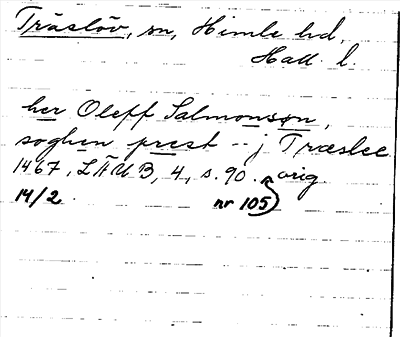 Träslöv, sn, Himle hd,
Hall. l.
her Oleff Salmonsøn,
soghen prest -- j Træslee
1467, LÄUB, 4, s. 90. orig.
14/2. nr 105